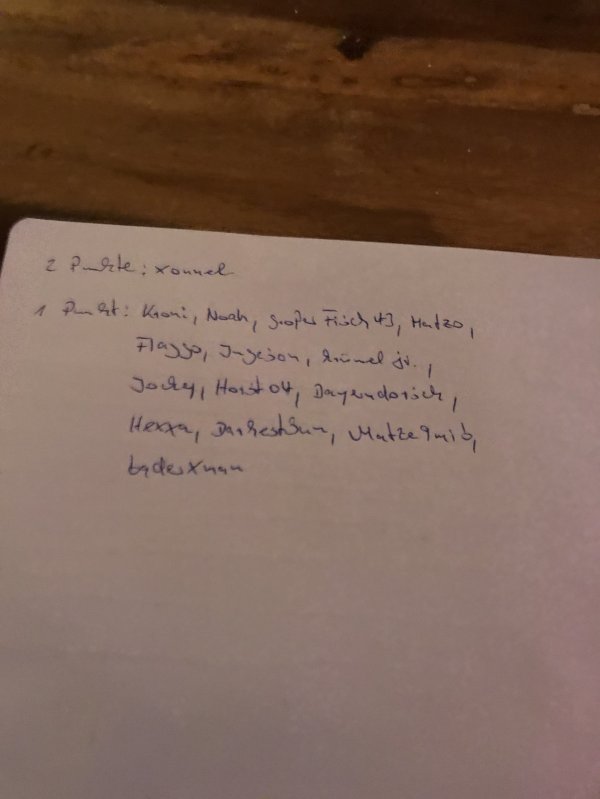 2 Punkte: xonnel
1 Punkt: Kromi, Noah, großer Fisch 43, Matzo,
Flaggo, Ingeson, Krümel jr.,
Jockey, Horst04, Bayerndorsch,
Hexxa, DarkestSun, Matze9mib,
baderxnan